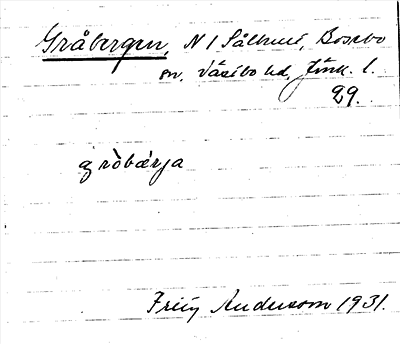 Gråbergen, N 1 Sålhult, Bosebo
sn, Västbo hd, Jönk. l.
29.
gròbærja
Andersson 1931.